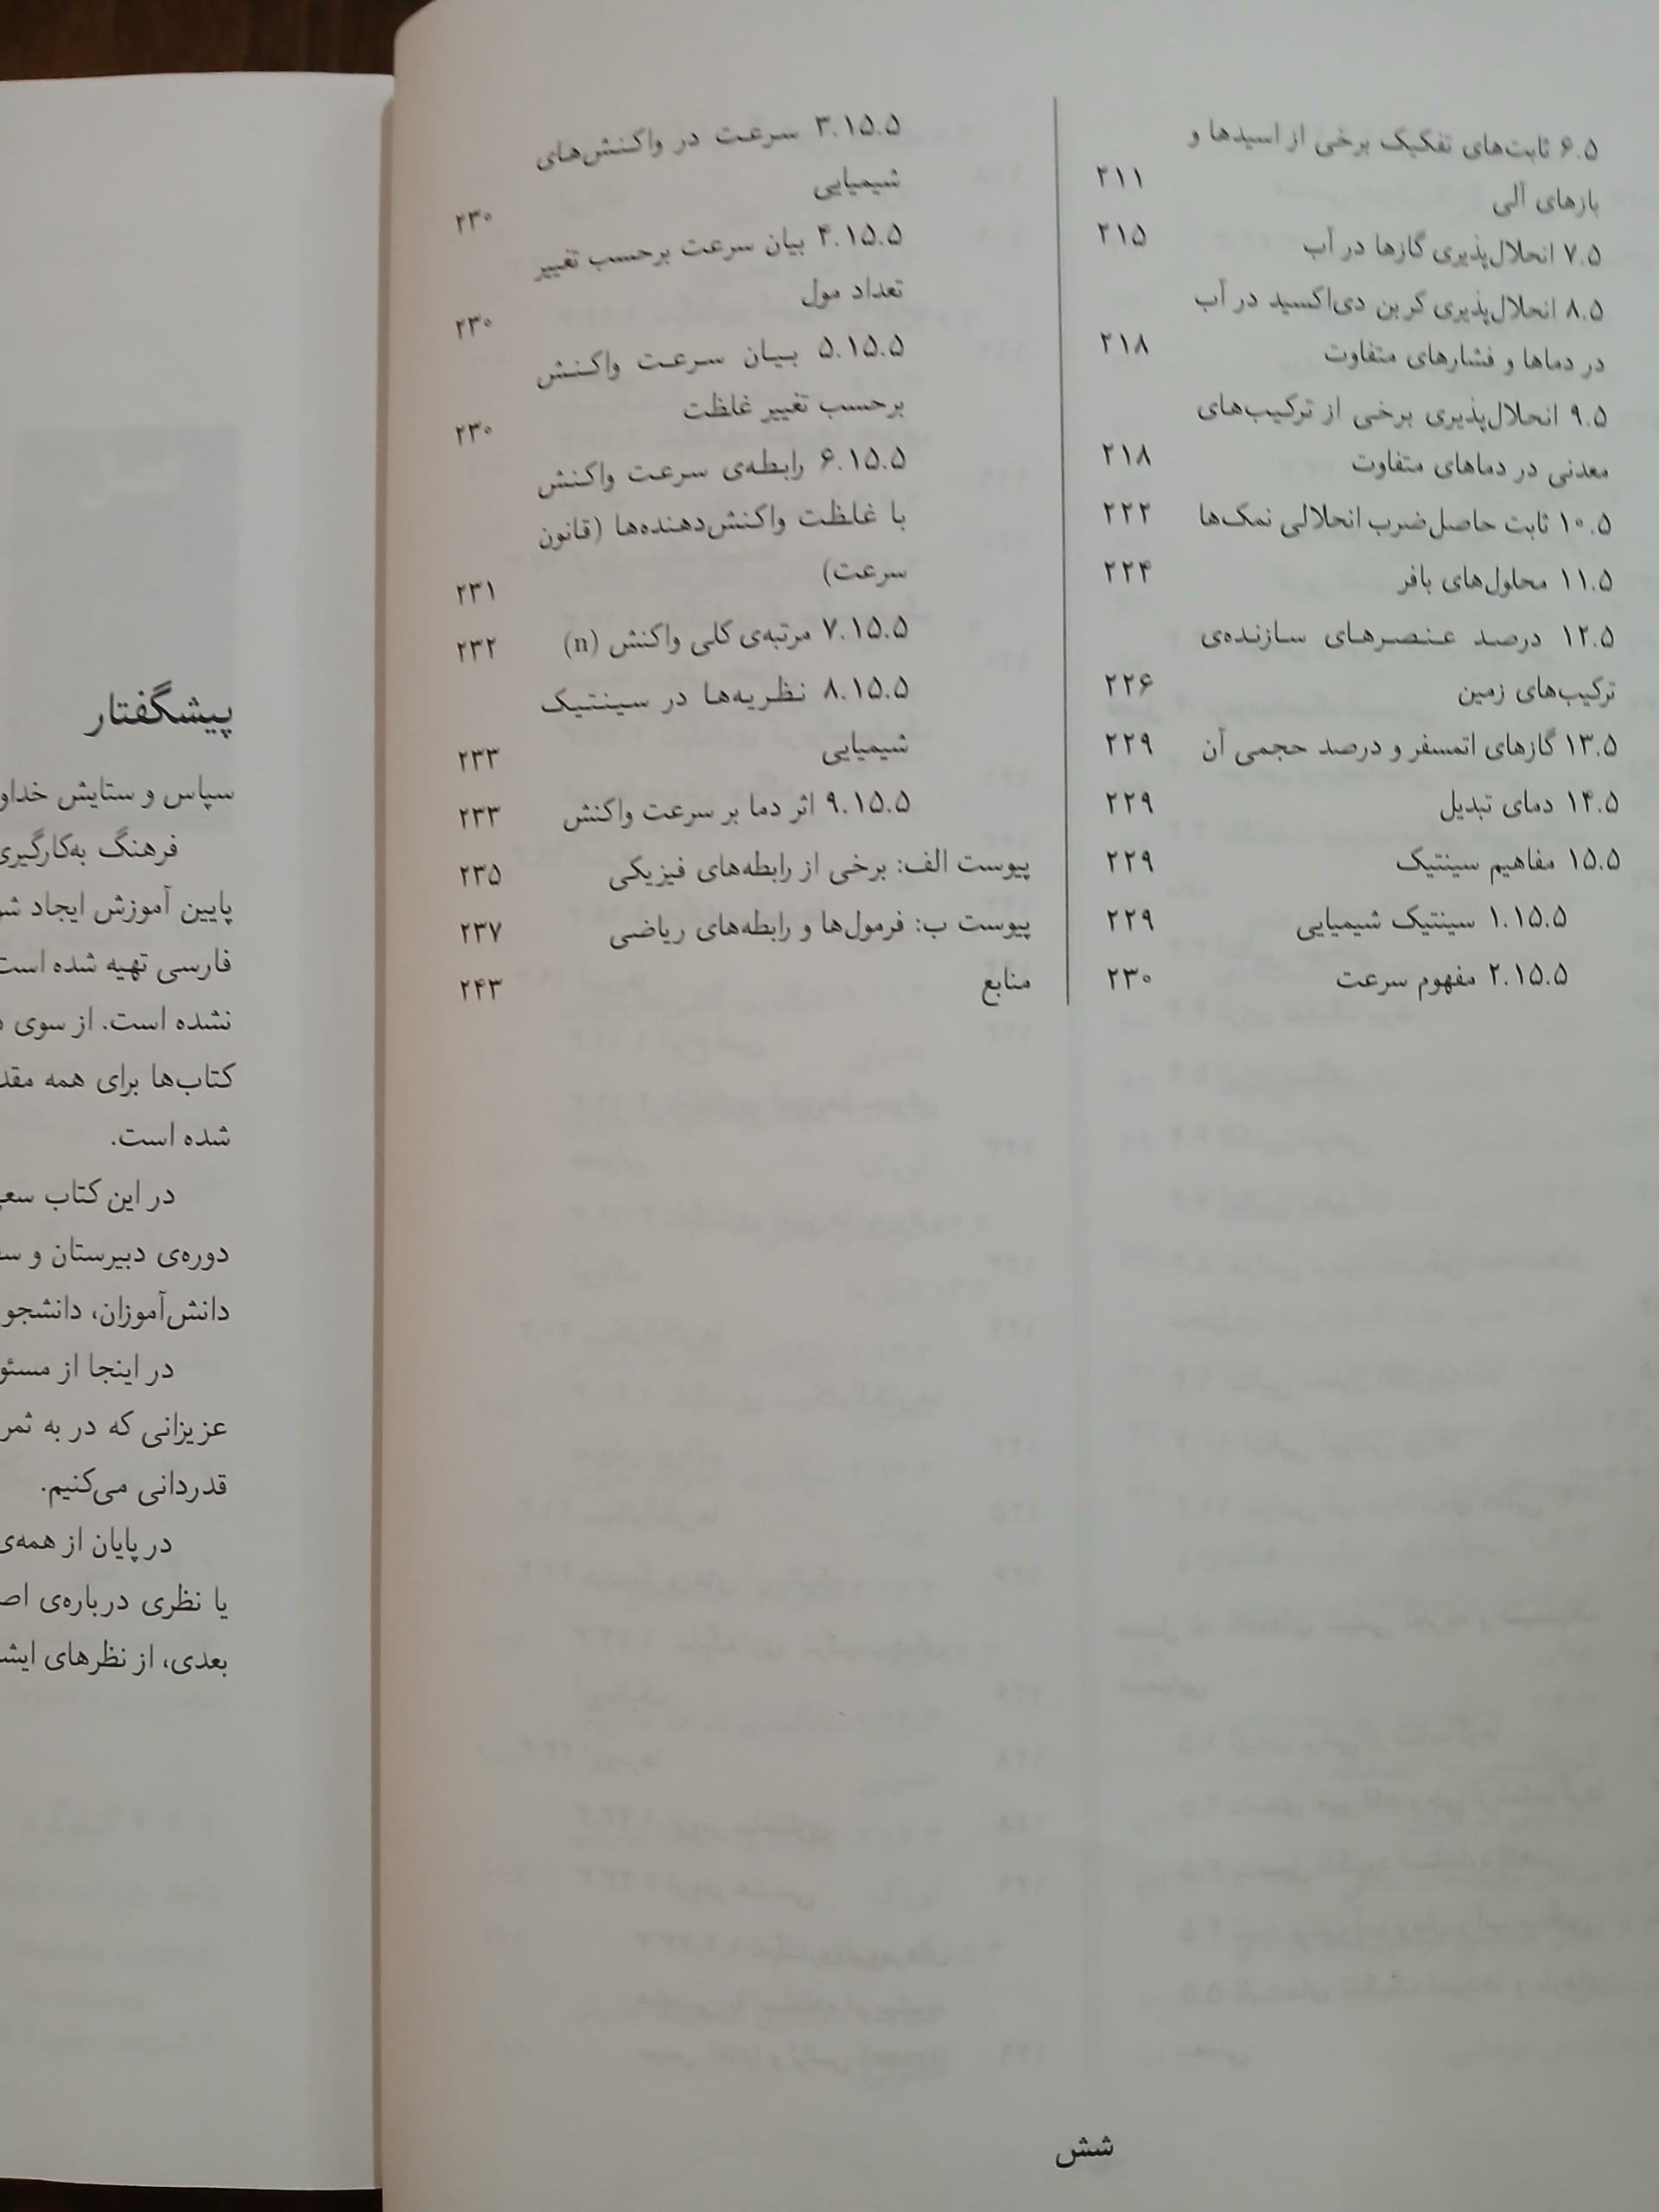 ۶.۵ ثابت‌های تفکیک برخی از اسیدها و
بازهای آلی ۲۱۱
۷.۵ انحلال‌پذیری گازها در آب ۲۱۵
۸.۵ انحلال‌پذیری کربن دی‌اکسید در آب
در دماها و فشارهای متفاوت ۲۱۸
۹.۵ انحلال‌پذیری برخی از ترکیب‌های
معدنی در دماهای متفاوت ۲۱۸
۱۰.۵ ثابت حاصل‌ضرب انحلالی نمک‌ها ۲۲۲
۱۱.۵ محلول‌های بافر ۲۲۴
۱۲.۵ درصد عنصرهای سازنده‌ی
ترکیب‌های زمین ۲۲۶
۱۳.۵ گازهای اتمسفر و درصد حجمی آن ۲۲۹
۱۴.۵ دمای تبدیل ۲۲۹
۱۵.۵ مفاهیم سینتیک ۲۲۹
۱.۱۵.۵ سینتیک شیمیایی ۲۲۹
۲.۱۵.۵ مفهوم سرعت ۲۳۰
۳.۱۵.۵ سرعت در واکنش‌های
شیمیایی ۲۳۰
۴.۱۵.۵ بیان سرعت برحسب تغییر
تعداد مول ۲۳۰
۵.۱۵.۵ بیان سرعت واکنش
برحسب تغییر غلظت ۲۳۰
۶.۱۵.۵ رابطه‌ی سرعت واکنش
با غلظت واکنش‌دهنده‌ها (قانون
سرعت) ۲۳۱
۷.۱۵.۵ مرتبه‌ی کلی واکنش (n) ۲۳۲
۸.۱۵.۵ نظریه‌ها در سینتیک
شیمیایی ۲۳۳
۹.۱۵.۵ اثر دما بر سرعت واکنش ۲۳۳
پیوست الف: برخی از رابطه‌های فیزیکی ۲۳۵
پیوست ب: فرمول‌ها و رابطه‌های ریاضی ۲۳۷
منابع ۲۴۳
شش
پیشگفتار
سپاس و ستایش
فرهنگ به‌کارگیری
پایین آموزش ایجاد
فارسی تهیه شده است
نشده است. از سوی
کتاب‌ها برای همه
شده است.
در این کتاب
دوره‌ی دبیرستان و
دانش‌آموزان،
در اینجا از
عزیزانی که در به
قدردانی می‌کنیم.
در پایان از همه‌ی
یا نظری درباره‌ی
بعدی، از نظرهای